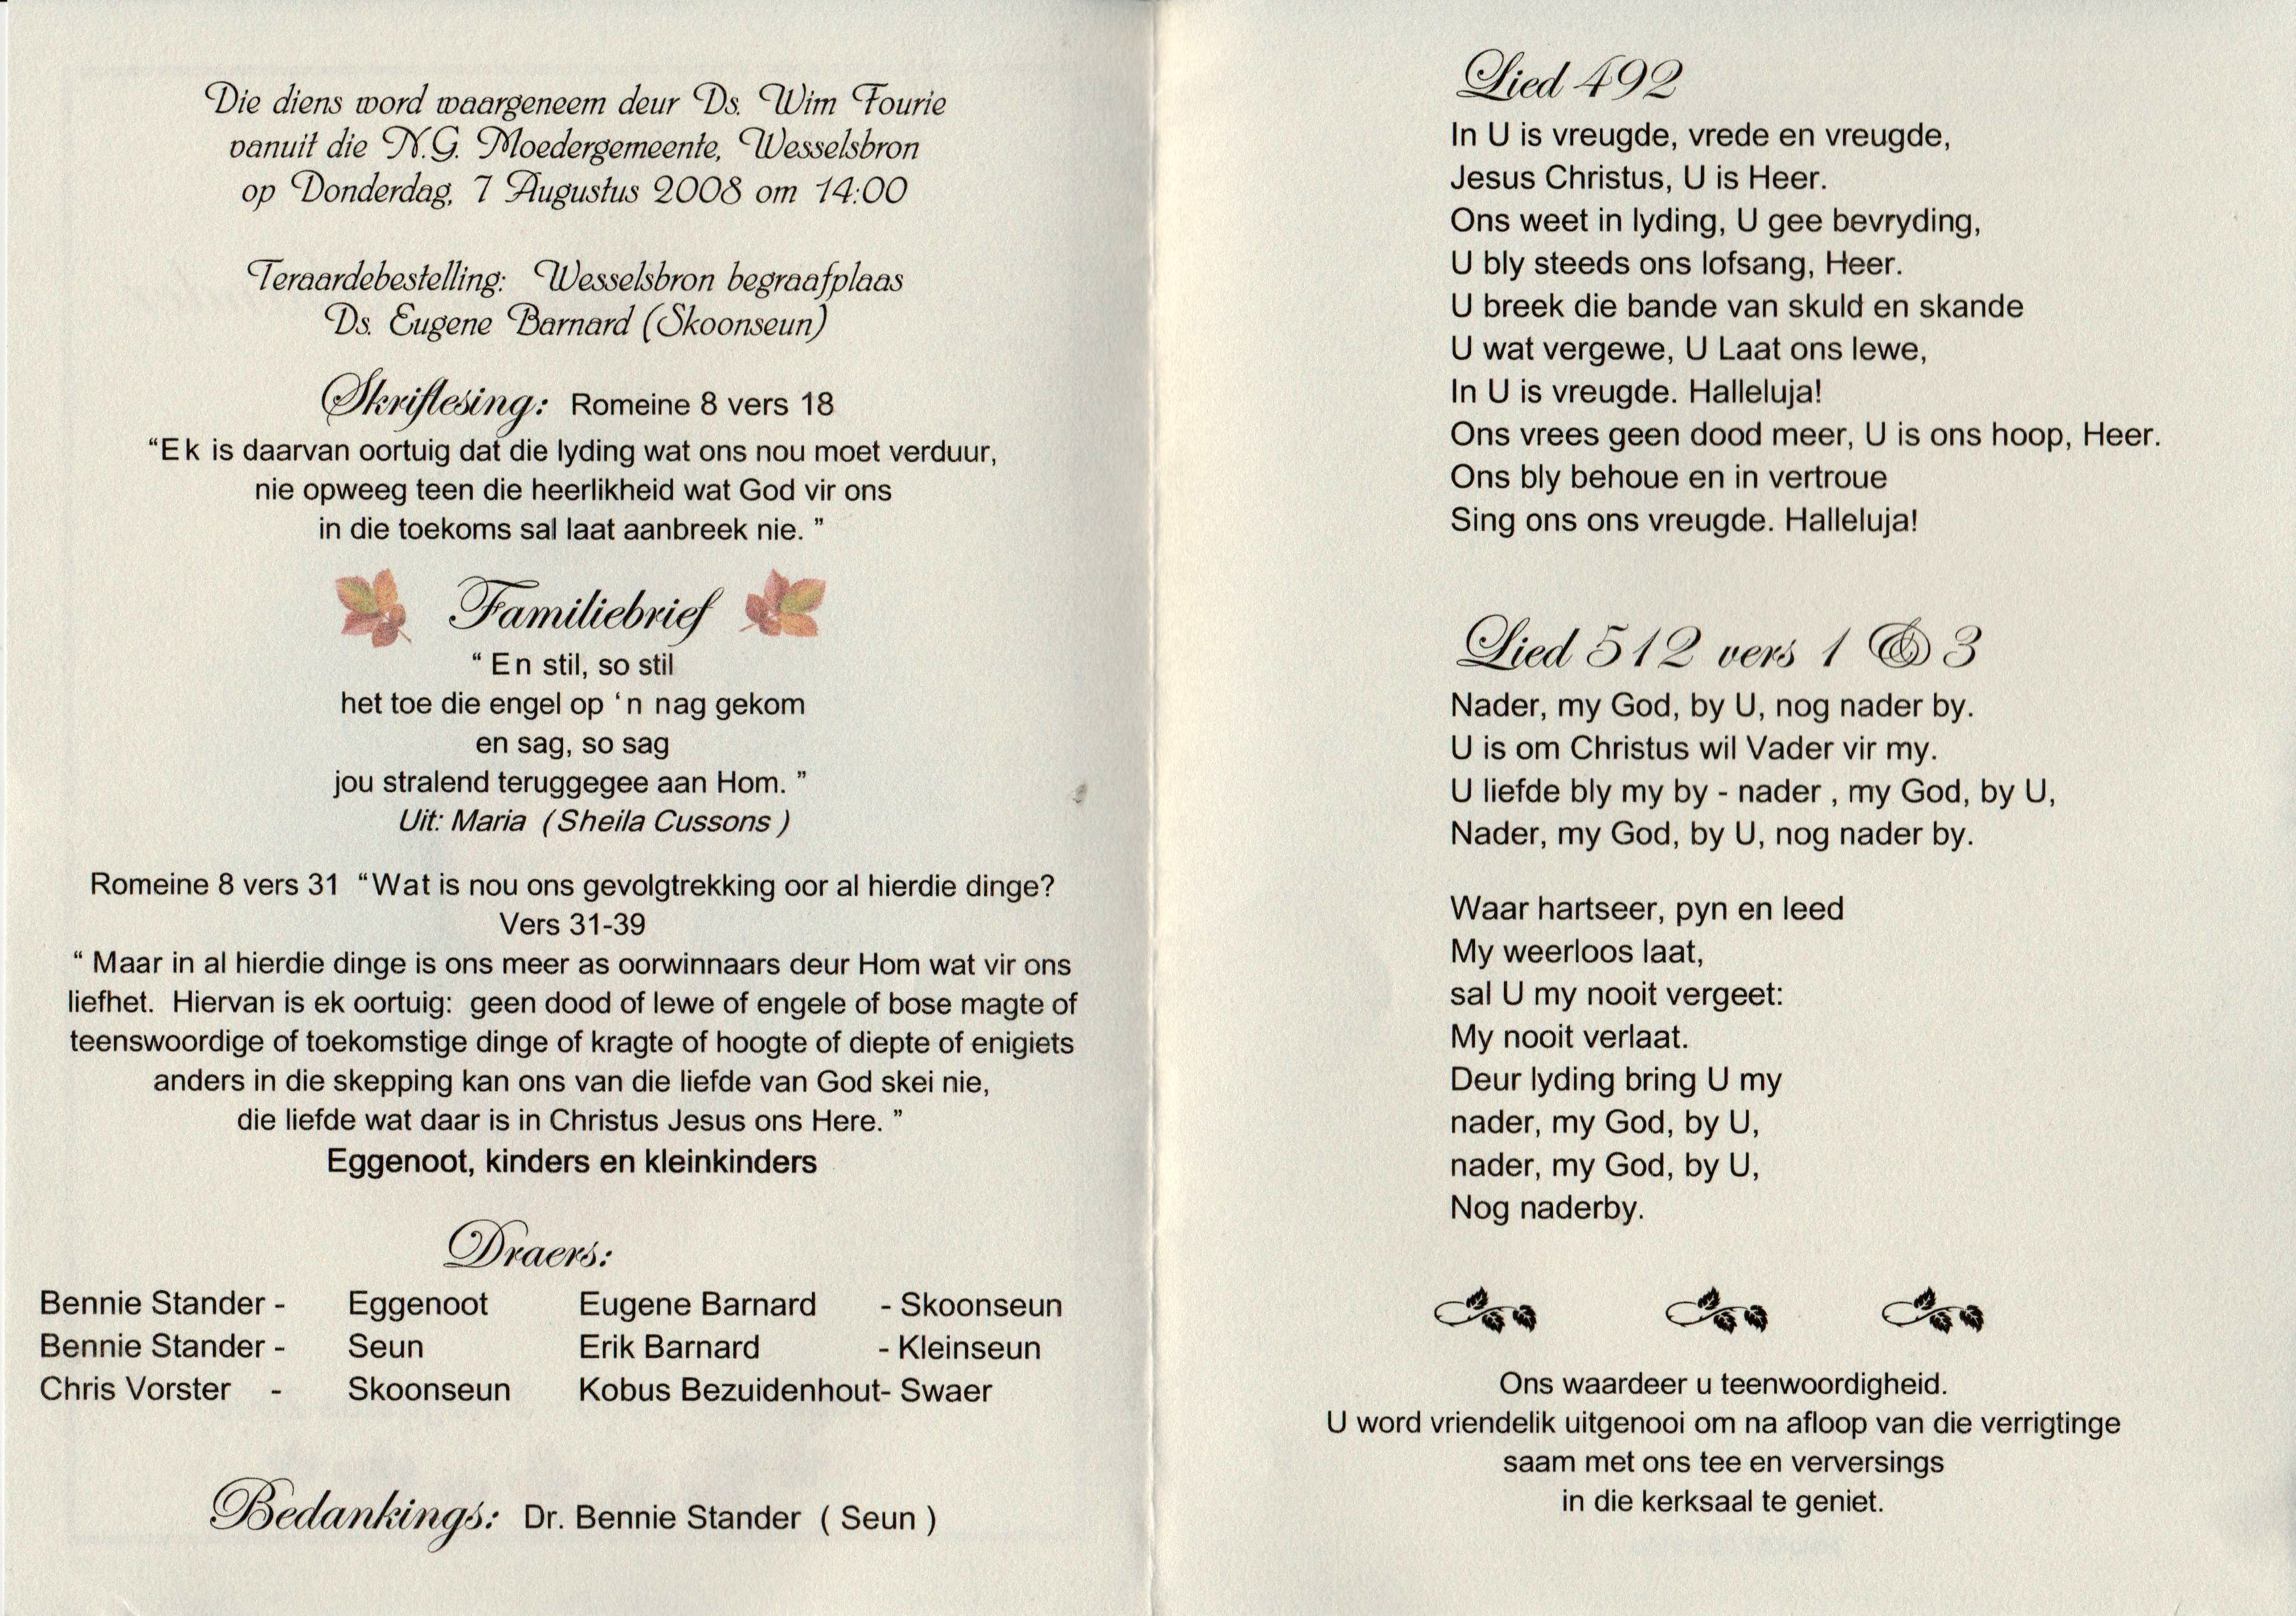 Die diens word waargeneem deur Ds. Wim Fourie
vanuit die N.G. Moedergemeente, Wesselsbron
op Donderdag, 7 Augustus 2008 om 14:00
Teraardebestelling: Wesselsbron begraafplaas
Ds. Eugene Barnard (Skoonseun)
Skriflesing: Romeine 8 vers 18
“Ek is daarvan oortuig dat die lyding wat ons nou moet verduur,
nie opweeg teen die heerlikheid wat God vir ons
in die toekoms sal laat aanbreek nie. ”
Familiebrief
“ En stil, so stil
het toe die engel op ‘n nag gekom
en sag, so sag
jou stralend teruggegee aan Hom. ”
Uit: Maria (Sheila Cussons )
Romeine 8 vers 31 “Wat is nou ons gevolgtrekking oor al hierdie dinge?
Vers 31-39
“ Maar in al hierdie dinge is ons meer as oorwinnaars deur Hom wat vir ons
liefhet. Hiervan is ek oortuig: geen dood of lewe of engele of bose magte of
teenswoordige of toekomstige dinge of kragte of hoogte of diepte of enigiets
anders in die skepping kan ons van die liefde van God skei nie,
die liefde wat daar is in Christus Jesus ons Here. ”
Eggenoot, kinders en kleinkinders
Draers:
Bennie Stander - Eggenoot Eugene Barnard - Skoonseun
Bennie Stander - Seun Erik Barnard - Kleinseun
Chris Vorster - Skoonseun Kobus Bezuidenhout- Swaer
Bedankings: Dr. Bennie Stander ( Seun )
Lied 492
In U is vreugde, vrede en vreugde,
Jesus Christus, U is Heer.
Ons weet in lyding, U gee bevryding,
U bly steeds ons lofsang, Heer.
U breek die bande van skuld en skande
U wat vergewe, U Laat ons lewe,
In U is vreugde. Halleluja!
Ons vrees geen dood meer, U is ons hoop, Heer.
Ons bly behoue en in vertroue
Sing ons ons vreugde. Halleluja!
Lied 512 vers 1 & 3
Nader, my God, by U, nog nader by.
U is om Christus wil Vader vir my.
U liefde bly my by - nader , my God, by U,
Nader, my God, by U, nog nader by.
Waar hartseer, pyn en leed
My weerloos laat,
sal U my nooit vergeet:
My nooit verlaat.
Deur lyding bring U my
nader, my God, by U,
nader, my God, by U,
Nog naderby.
Ons waardeer u teenwoordigheid.
U word vriendelik uitgenooi om na afloop van die verrigtinge
saam met ons tee en verversings
in die kerksaal te geniet.